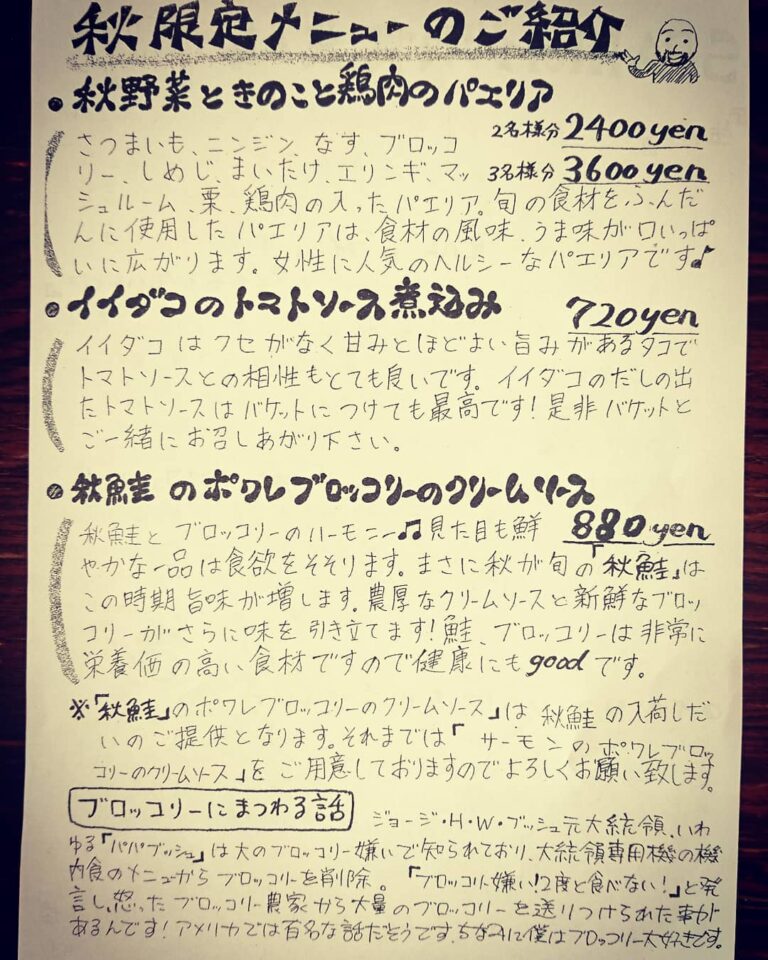 秋限定メニューのご紹介
・秋野菜ときのこと鶏肉のパエリア
さつまいも、ニンジン、なす、ブロッコ 2名様分 2400yen
リー、しめじ、まいたけ、エリンギ、マッ 3名様分 3600yen
シュルーム、栗、鶏肉の入ったパエリア。旬の食材をふんだ
んに使用したパエリアは、食材の風味、うま味が口いっぱ
いに広がります。女性に人気のヘルシーなパエリアです♪
・イイダコのトマトソース煮込み 720yen
イイダコはクセがなく甘みとほどよい旨みがあるタコで
トマトソースとの相性もとても良いです。イイダコのだしの出
たトマトソースはバケットにつけても最高です!是非バケットと
ご一緒にお召しあがり下さい。
・秋鮭のポワレブロッコリーのクリームソース
秋鮭とブロッコリーのハーモニー♫見た目も鮮 880yen
やかな一品は食欲をそそります。まさに秋が旬の「秋鮭」は
この時期旨味が増します。濃厚なクリームソースと新鮮なブロッ
コリーがさらに味を引き立てます!鮭、ブロッコリーは非常に
栄養価の高い食材ですので健康にもgoodです。
※「秋鮭」のポワレブロッコリーのクリームソース」は秋鮭の入荷しだ
いのご提供となります。それまでは「サーモンのポワレブロッ
コリーのクリームソース」をご用意しておりますのでよろしくお願い致します。
ブロッコリーにまつわる話
ジョージ・H・W・ブッシュ元大統領、いわ
ゆる「パパブッシュ」は大のブロッコリー嫌いで知られており、大統領専用機の機
内食のメニューからブロッコリーを削除。「ブロッコリー嫌い!2度と食べない!」と発
言し、怒ったブロッコリー農家から大量のブロッコリーを送りつけられた事が
あるんです!アメリカでは有名な話だそうです。ちなみに僕はブロッコリー大好きです。